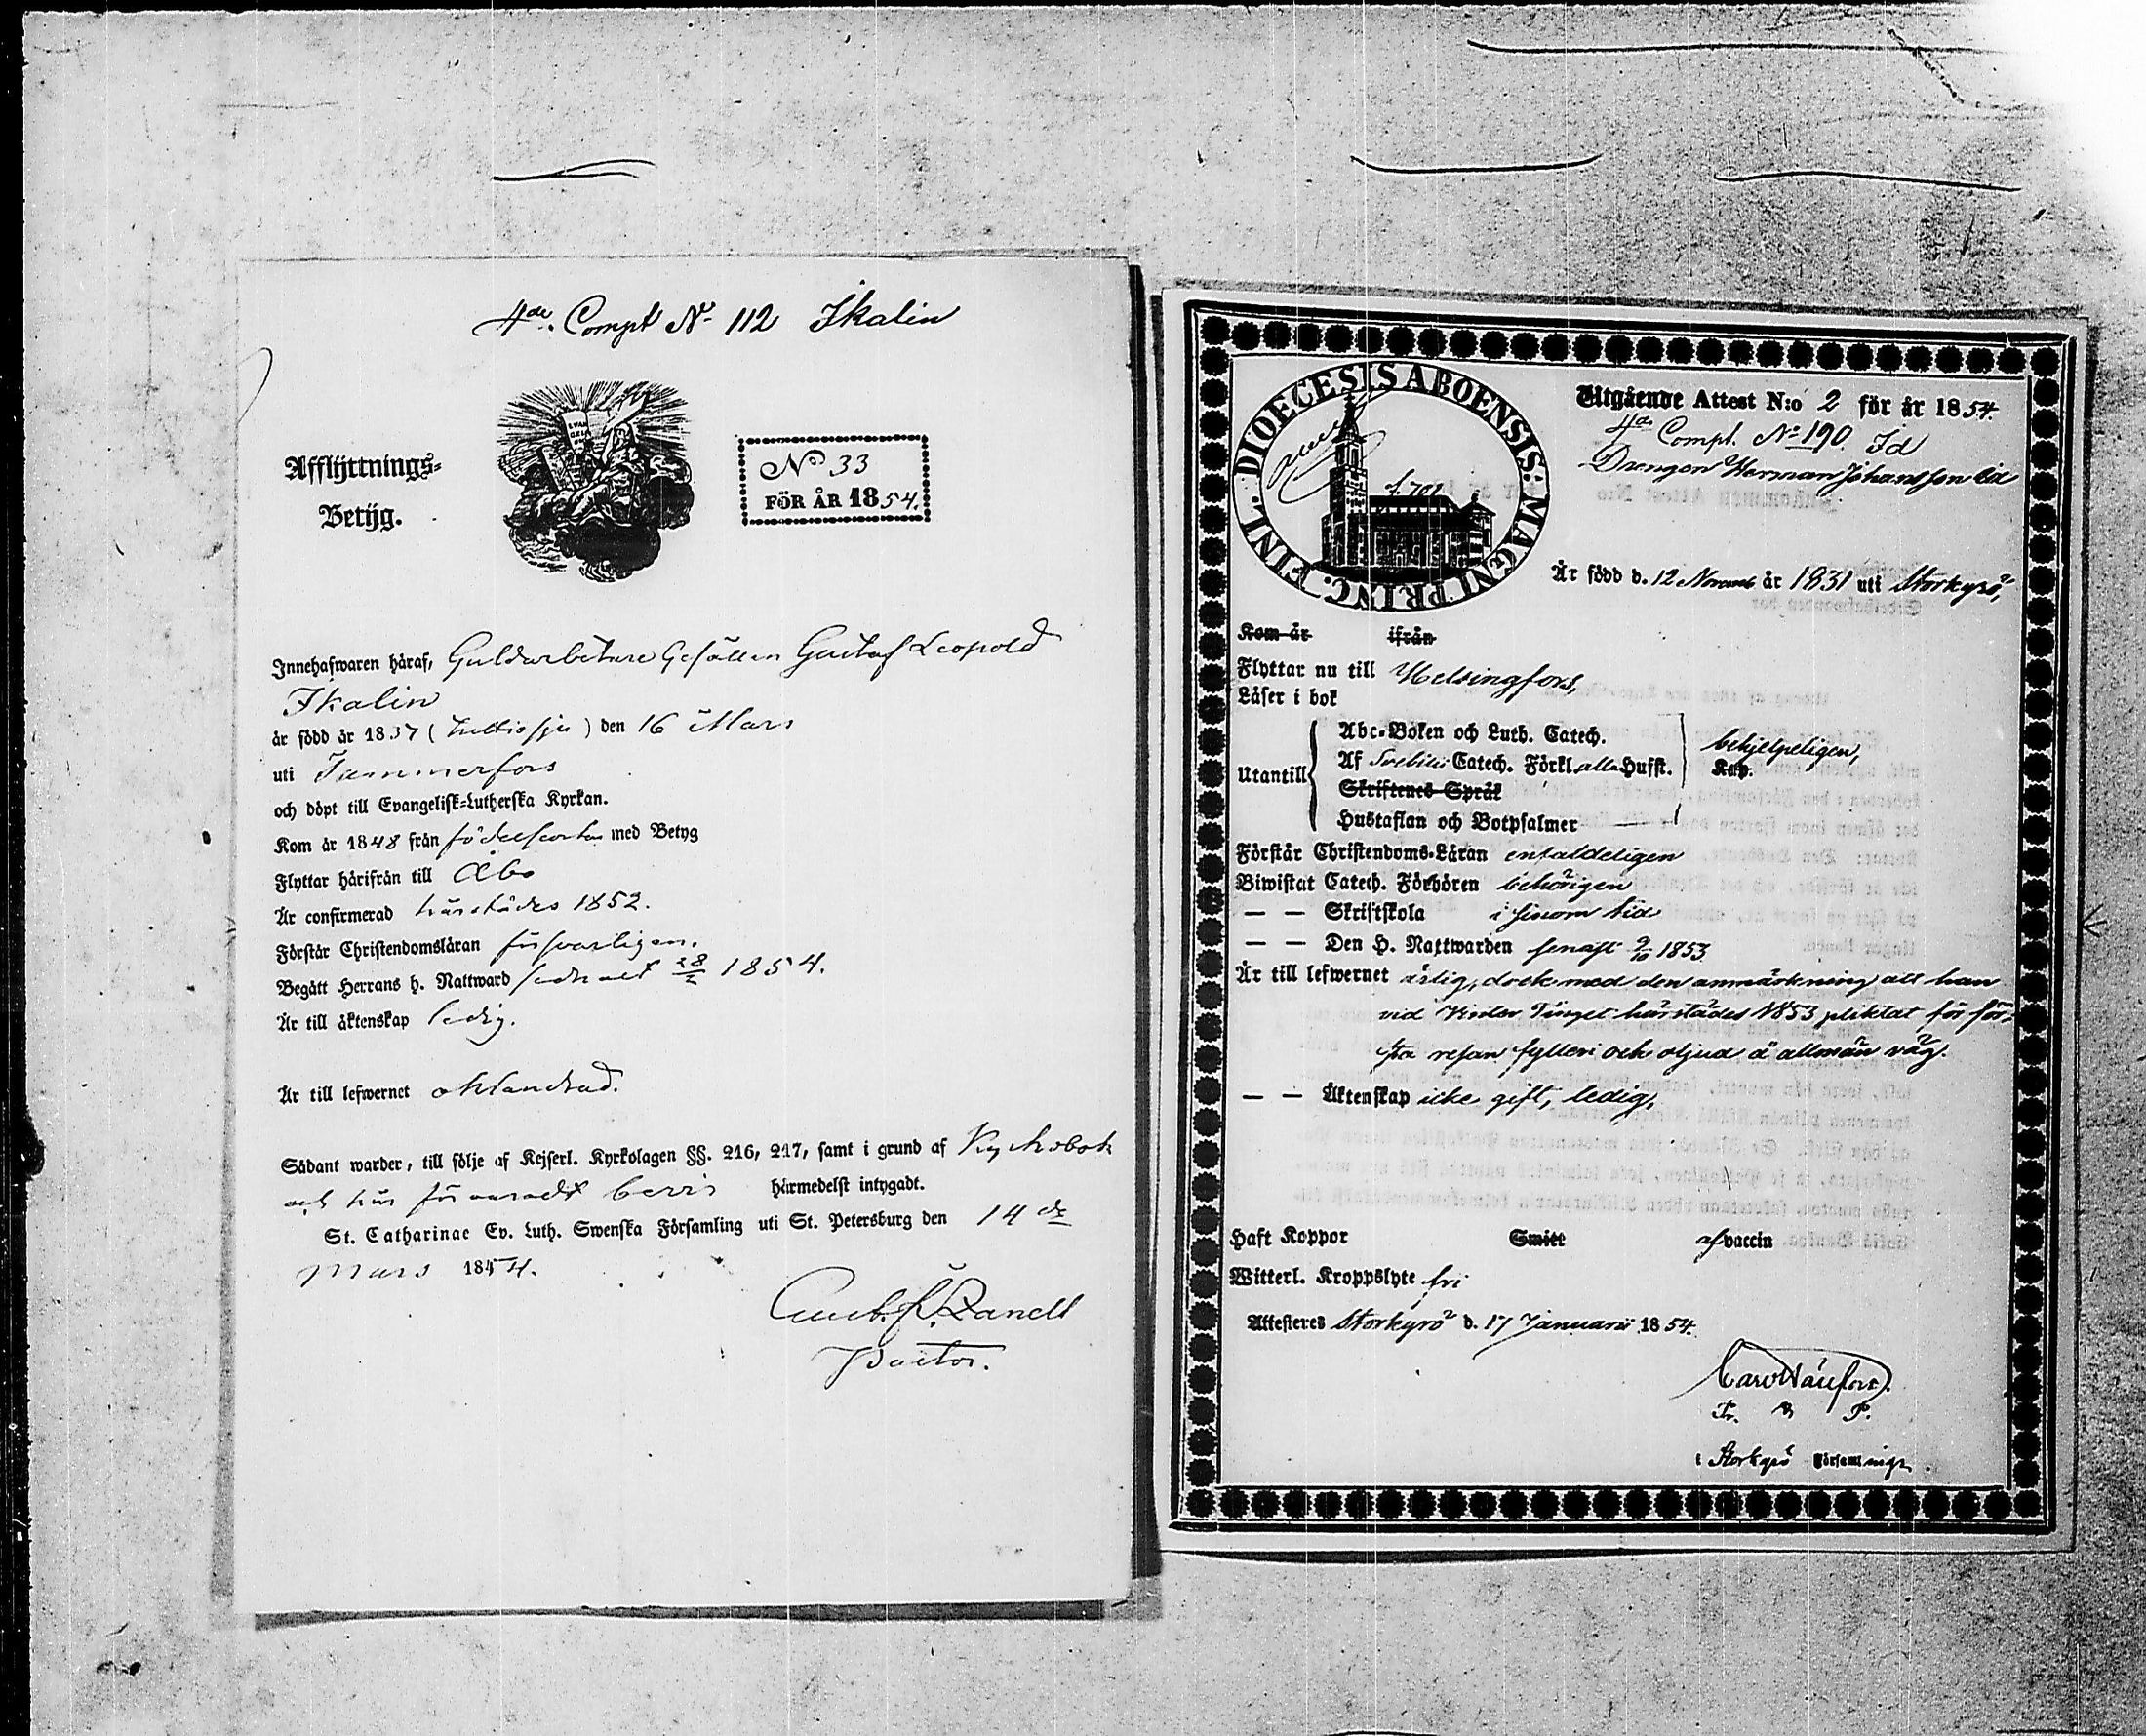 4de. Compt No 112 Ikalin
Afflyttnings-
Betyg.
No 33
FÖR ÅR 1854.
Innehafwaren häraf, Guldarbetare Gesällen Gustaf Leopold
Ikalin
är född år 1837 (trettiosju) den 16 Mars
uti Tammerfors
och döpt till Evangelisk-Lutherska Kyrkan.
Kom år 1848 från födelseorten med Betyg
Flyttar härifrån till Åbo
Är confirmerad härstädes 1852.
Förstår Christendomsläran försvarligen.
Begått Herrans h. Nattward sednast 28/2 1854.
Är till äktenskap ledig.
Är till lefwernet oklandrad.
Sådant warder, till följe af Kejserl. Kyrkolagen §§. 216, 217, samt i grund af Kyrkobok
och här bevis härmedelst intygadt.
St. Catharinae Ev. Luth. Swenska Församling uti St. Petersburg den 14de
Mars 1854.
Gust. F. Zandt
Pastor.
FINL. DIOECESIS ABOENSIS MAGNI PRINC.
Utgående Attest N:o 2 för år 1854.
4de Compt. No 190. Id
Drengen Herman Johansson
Är född d. 12 Novemb år 1831 uti Storkyrö,
Kom år ifrån
Flyttar nu till Helsingfors,
Läser i bok
Utantill
Abc-Boken och Luth. Catech.
Af Svebilii Catech. Förkl. alla Hufst.
Skriftenes Språk
Hustaflan och Botpsalmer
behjelpeligen,
Kap.
Förstår Christendoms-Läran enfaldeligen
Biwistat Catech. Förhören behörigen
— — Skriftskola i sinom tid
— — Den H. Nattwarden senast 9/10 1853
Är till lefwernet ärlig, dock med den anmärkning att han
vid Vinter Tinget härstädes 1853 pliktat för för-
sta resan fylleri och oljud å allmän väg.
— — Äktenskap icke gift, ledig,
Haft Koppor Smitt af vaccin
Witterl. Kroppslyte fri
Attesteras Storkyrö d. 17 Januarii 1854.
i Storkyrö Församlings